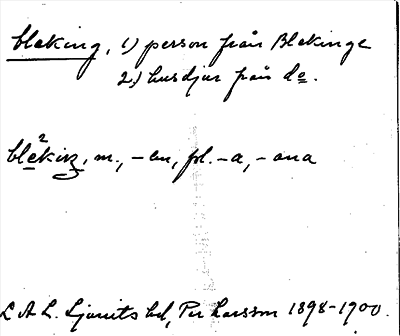 bleking, 1) person från Blekinge
2) husdjur från do.
blekiŋ, m., -en, pl. -a, -ana
L A L. Ljunits hd, Per Larsson 1898-1900.